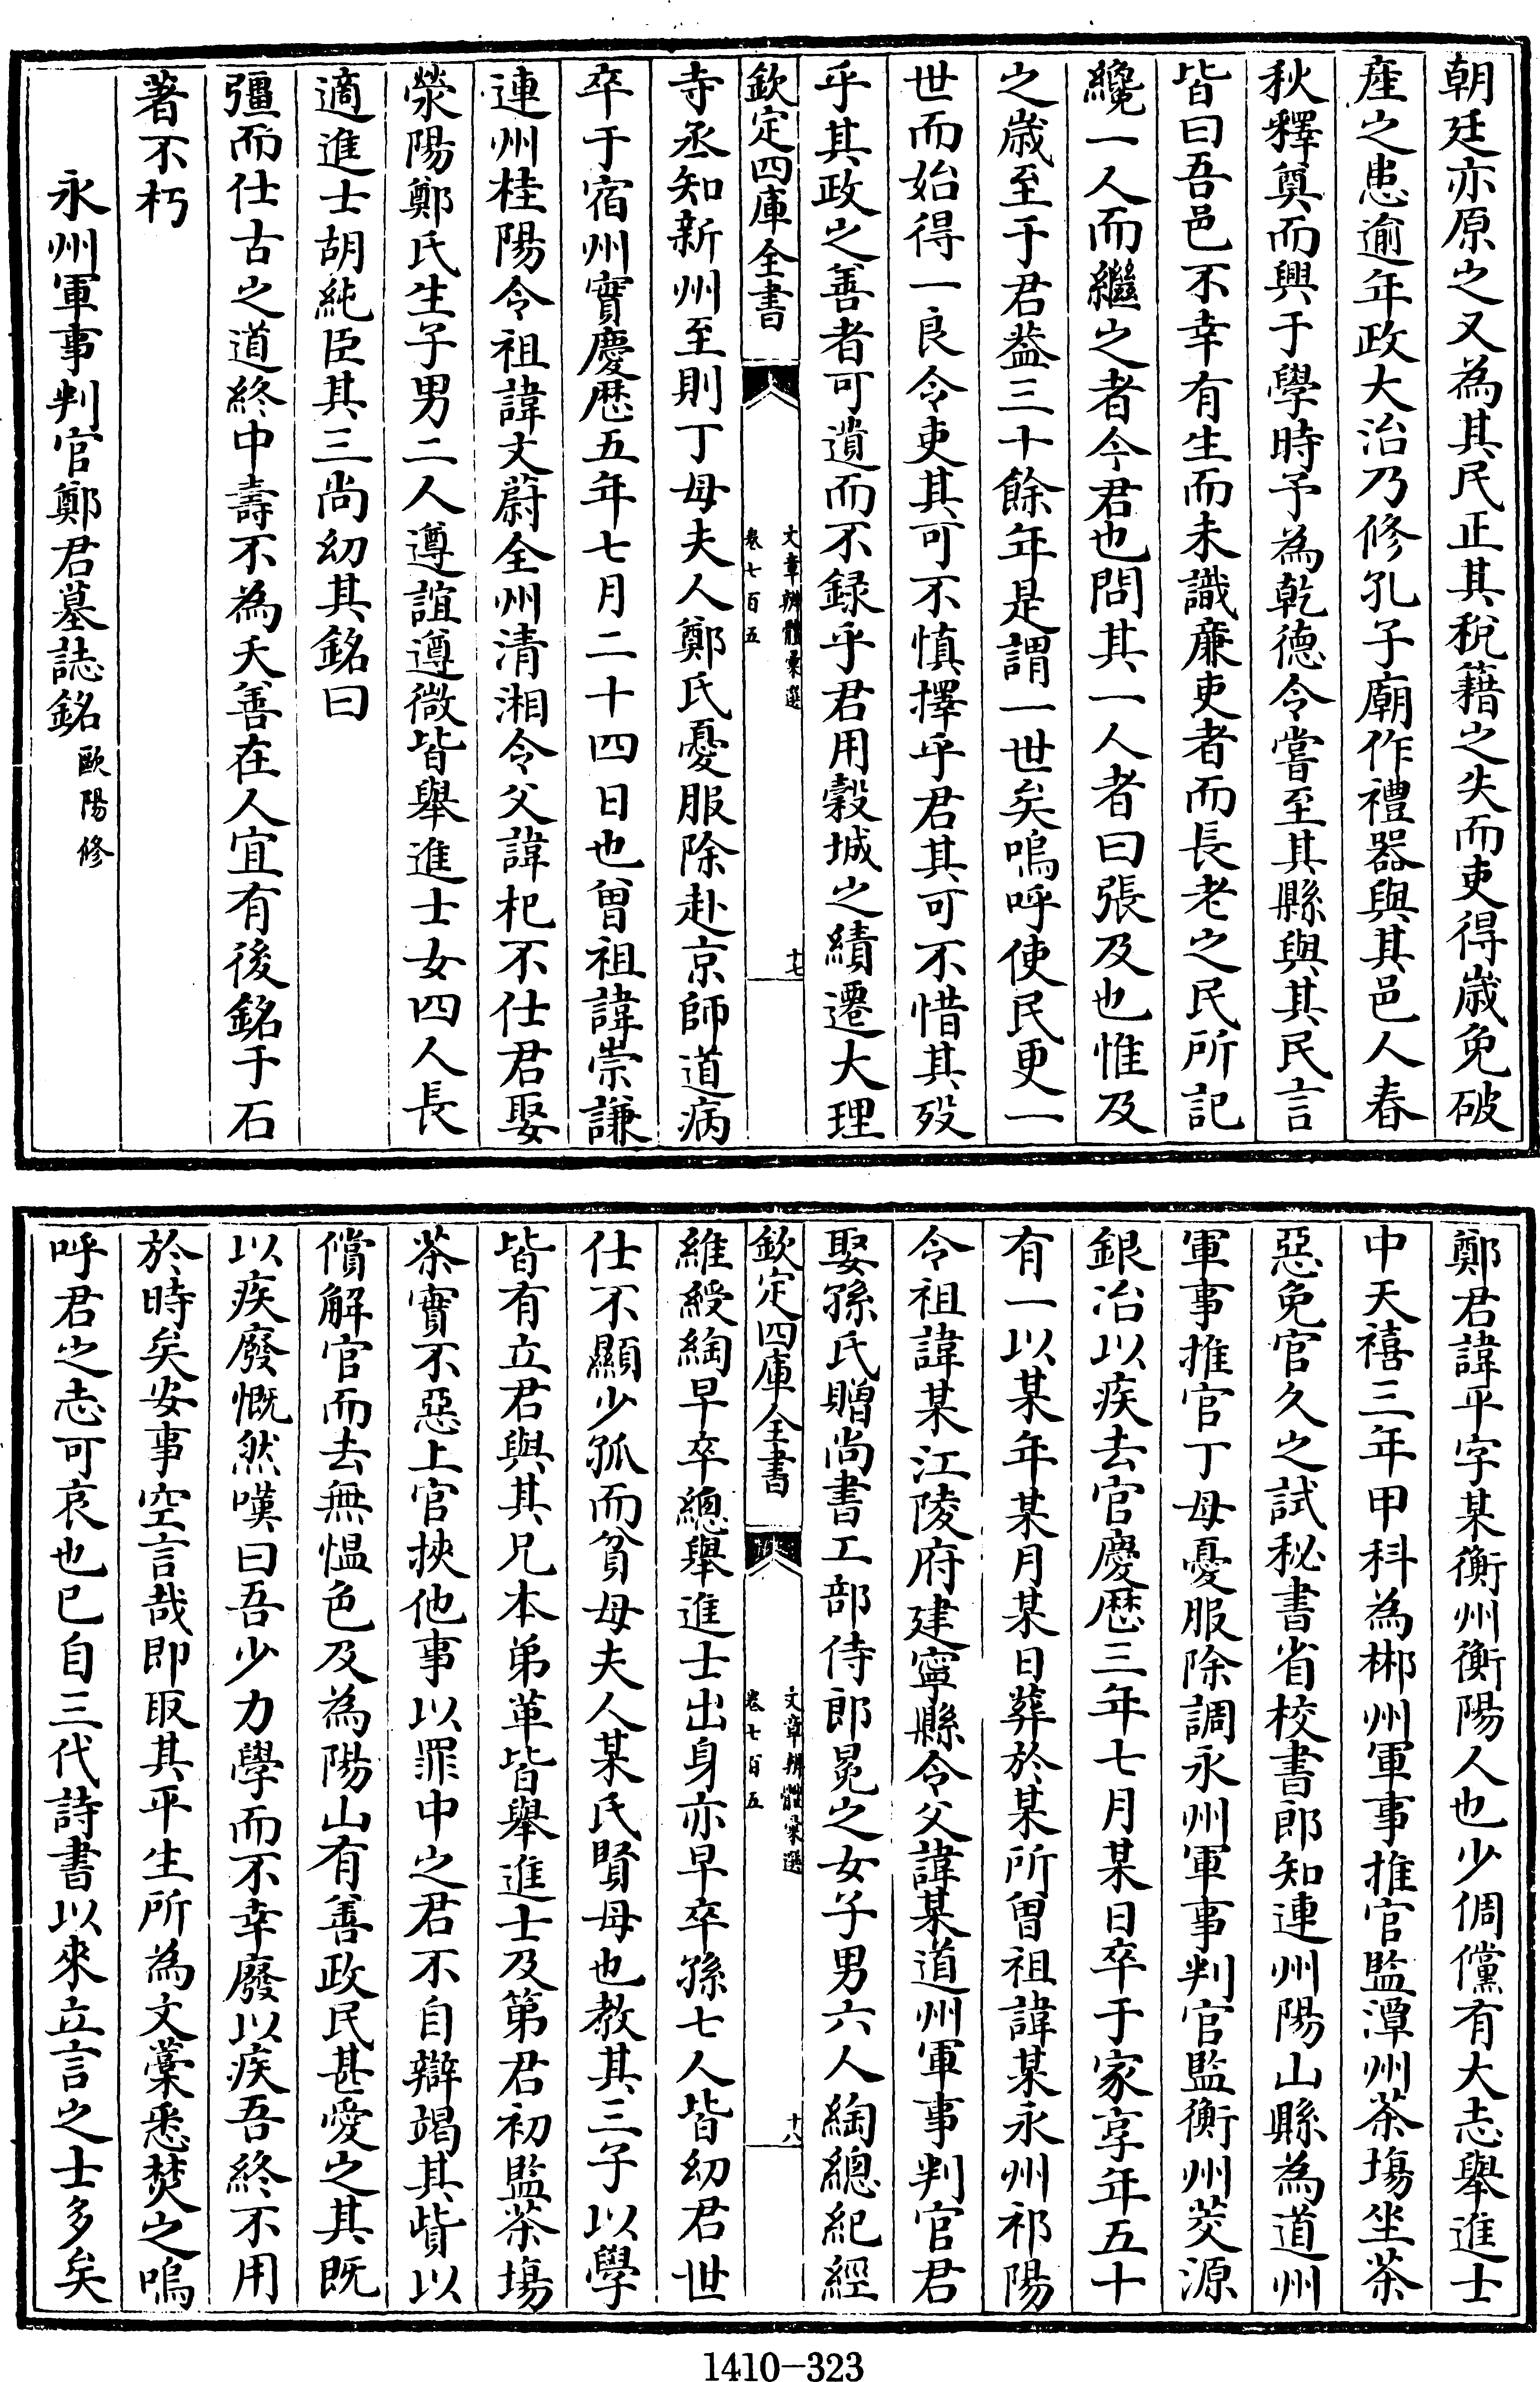 朝廷亦原之又為其民正其稅籍之失而吏得歲免破
產之患逾年政大治乃修孔子廟作禮器與其邑人春
秋釋奠而興于學時予為乾德令嘗至其縣與其民言
皆曰吾邑不幸有生而未識廉吏者而長老之民所記
纔一人而繼之者今君也問其一人者曰張及也惟及
之歲至于君葢三十餘年是謂一世矣嗚呼使民更一
世而始得一良令吏其可不慎擇乎君其可不惜其歿
乎其政之善者可遺而不録乎君用穀城之績遷大理
欽定四庫全書
文章辨體彙選
卷七百五
十七
寺丞知新州至則丁母夫人鄭氏憂服除赴京師道病
卒于宿州實慶歴五年七月二十四日也曾祖諱崇謙
連州桂陽令祖諱文蔚全州清湘令父諱杞不仕君娶
滎陽鄭氏生子男二人遵誼遵微皆舉進士女四人長
適進士胡純臣其三尚幼其銘曰
彊而仕古之道終中壽不為夭善在人宜有後銘于石
著不朽
永州軍事判官鄭君墓誌銘 歐陽修
鄭君諱平字某衡州衡陽人也少倜儻有大志舉進士
中天禧三年甲科為郴州軍事推官監潭州茶場坐茶
惡免官久之試秘書省校書郎知連州陽山縣為道州
軍事推官丁母憂服除調永州軍事判官監衡州茭源
銀冶以疾去官慶歴三年七月某日卒于家享年五十
有一以某年某月某日葬於某所曾祖諱某永州祁陽
令祖諱某江陵府建寧縣令父諱某道州軍事判官君
娶孫氏贈尚書工部侍郎冕之女子男六人綯總紀經
欽定四庫全書
文章辨體彙選
卷七百五
十八
維綬綯早卒總舉進士出身亦早卒孫七人皆幼君世
仕不顯少孤而貧母夫人某氏賢母也教其三子以學
皆有立君與其兄本弟革皆舉進士及第君初監茶場
茶實不惡上官挾他事以罪中之君不自辯竭其貲以
償解官而去無慍色及為陽山有善政民甚愛之其既
以疾廢慨然嘆曰吾少力學而不幸廢以疾吾終不用
於時矣安事空言哉即取其平生所為文藁悉焚之嗚
呼君之志可哀也已自三代詩書以來立言之士多矣
1410-323